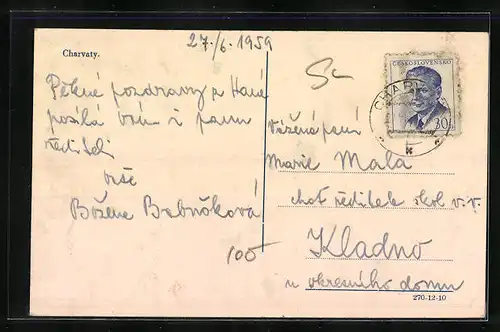 27./6. 1959
Charvaty.
ČESKOSLOVENSKO
30 h
CHARV
Pěkné pozdravy z Hané
posílá Vám i panu
řediteli
Vaše
Božena
100
Vážená paní
Marie Malá
choť ředitele škol v. v.
Kladno
u okresního domu
270-12-10